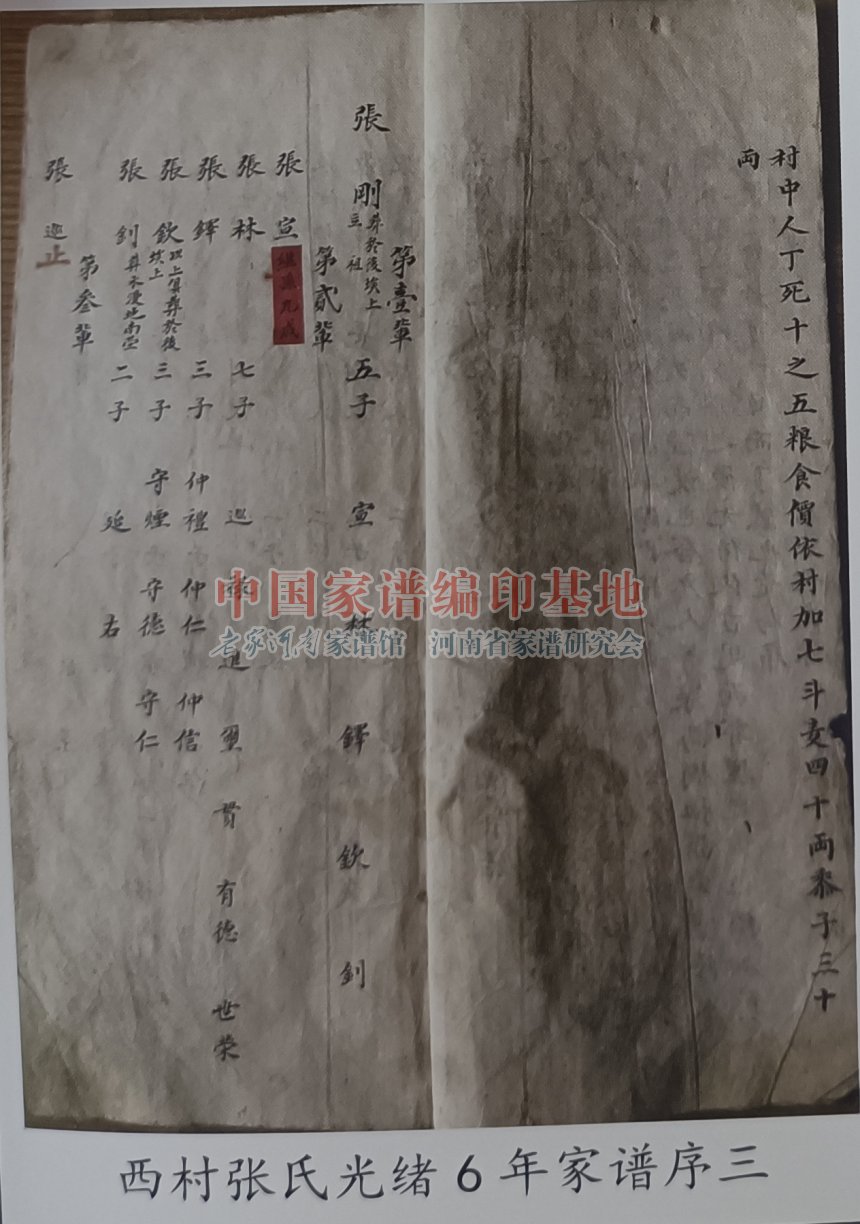 村中人丁死十之五粮食價依村加七斗麦四十両黍子三十
両
第壹輩
張剛 葬於後塋上 立祖 五子 宣 林 鐸 欽 釗
第貳輩
張宣
張林 七子 巡 禄 進 璽 貫 有德 世荣
張鐸 三子 仲禮 仲仁 仲信
張欽 以上俱葬於後塋上 三子 守煙 守德 守仁
張釗 二子 延 右
第叁輩
張迎 止
中国家谱编印基地
老家河南家谱馆 河南省家谱研究会
西村张氏光绪6年家谱序三